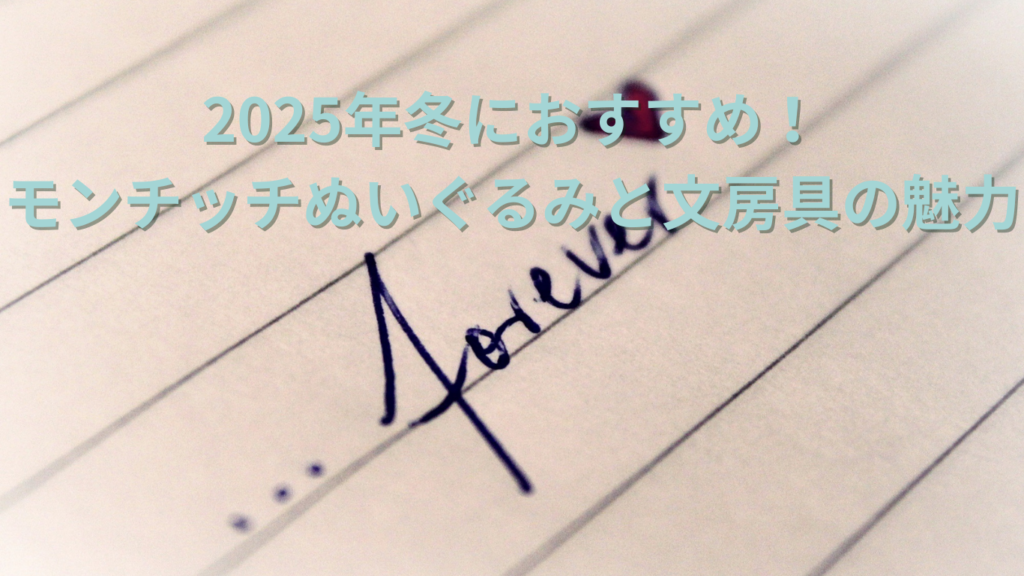 2025年冬におすすめ！
モンチッチぬいぐるみと文房具の魅力
...forever